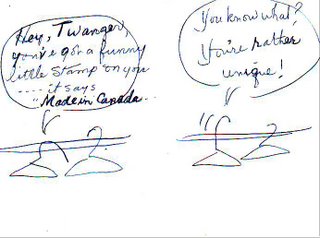 Hey, Twanger,
you've got a funny
little stamp on you
..... it says
"Made in Canada..
You know what?
You're rather
unique!